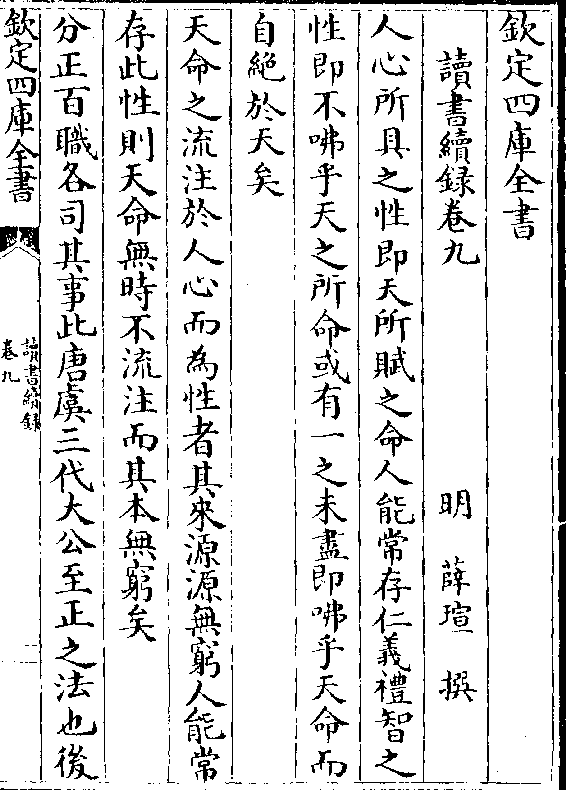 欽定四庫全書
讀書續録卷九
明 薛瑄 撰
人心所具之性即天所賦之命人能常存仁義禮智之
性即不咈乎天之所命或有一之未盡即咈乎天命而
自絶於天矣
天命之流注於人心而為性者其來源源無窮人能常
存此性則天命無時不流注而其本無窮矣
分正百職各司其事此唐虞三代大公至正之法也後
欽定四庫全書
讀書續録
卷九
一